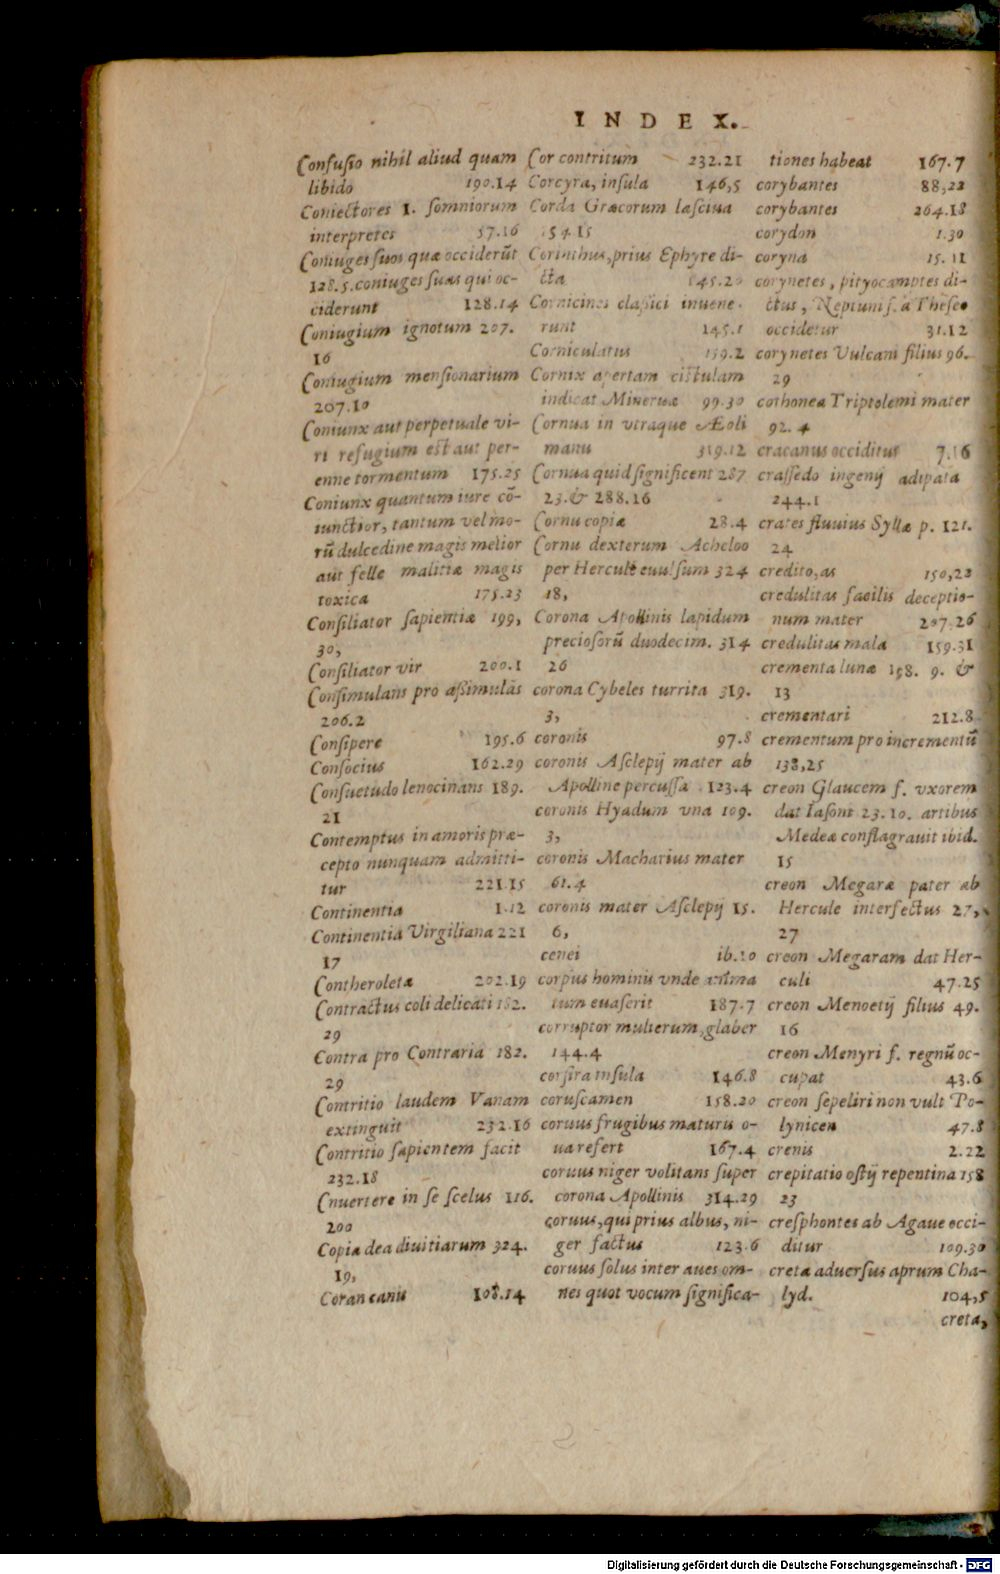 INDEX.
Confusio nihil aliud quam
libido 190.14
Coniectores 1. somniorum
interpretes 57.16
Coniuges suos quæ occiderūt
128.5. coniuges suas qui oc-
ciderunt 128.14
Coniugium ignotum 207.
16
Coniugium mensionarium
207.10
Coniunx aut perpetuale vi-
ri refugium est aut per-
enne tormentum 175.25
Coniunx quantum iure cō-
iunctior, tantum vel mo-
rū dulcedine magis melior
aut felle malitiæ magis
toxica 175.23
Consiliator sapientiæ 199,
30,
Consiliator vir 200.1
Consimulans pro assimulās
206.2
Consipere 195.6
Consocius 162.29
Consuetudo lenocinans 189.
21
Contemptus in amoris præ-
cepto nunquam admitti-
tur 221.15
Continentia 1.12
Continentia Virgiliana 221
17
Contheroletæ 202.19
Contractus coli delicati 182.
29
Contra pro Contraria 182.
29
Contritio laudem Vanam
extinguit 232.16
Contritio sapientem facit
232.18
Cnuertere in se scelus 116.
200
Copia dea diuitiarum 324.
19,
Coran canis 108.14
Cor contritum 232.21
Corcyra, insula 146,5
Corda Græcorum lasciua
154 15
Corinthus, prius Ephyre di-
cta 145.20
Cornicines classici inuene-
runt 145.1
Corniculatus 159.2
Cornix apertam cistulam
indicat Mineruæ 99.30
Cornua in vtraque Æoli
manu 319.12
Cornua quid significent 287
23. & 288.16
Cornu copiæ 28.4
Cornu dexterum Acheloo
per Herculē euulsum 324
18,
Corona Apollinis lapidum
preciosorū duodecim. 314
26
corona Cybeles turrita 319.
3,
coronis 97.8
coronis Asclepij mater ab
Apolline percussa 123.4
coronis Hyadum vna 109.
3,
coronis Macharius mater
61.4
coronis mater Asclepij 15.
6,
cenei ib.10
corpus hominis vnde
tum euaserit 187.7
corruptor mulierum, glaber
144.4
corsira insula 146.8
coruscamen 158.20
coruus frugibus maturis o-
ua refert 167.4
coruus niger volitans super
corona Apollinis 314.29
coruus, qui prius albus, ni-
ger factus 123.6
coruus solus inter aues om-
nes quot vocum significa-
tiones habeat 167.7
corybantes 88,22
corybantes 264.18
corydon 1.30
coryna 15.11
corynetes, pityocamptes di-
ctus, Neptuni f. a Theseo
occidetur 31.12
corynetes Vulcani filius 96.
29
cothonea Triptolemi mater
92.4
cracanus occiditur 7.16
crassedo ingenij adipata
244.1
crates fluuius Syllæ p. 121.
24
credito,as 150,22
credulitas facilis deceptio-
num mater 207.26
credulitas mala 159.31
crementa lunæ 158. 9. &
13
crementari 212.8
crementum pro incrementū
138,25
creon Glaucem f. vxorem
dat Iasoni 23.10. artibus
Medeæ conflagrauit ibid.
15
creon Megaræ pater ab
Hercule interfectus 27,
27
creon Megaram dat Her-
culi 47.25
creon Menoetij filius 49.
16
creon Menyri f. regnū oc-
cupat 43.6
creon sepeliri non vult Po-
lynicen 47.8
crenis 2.22
crepitatio ostij repentina 158
23
cresphontes ab Agaue occi-
ditur 109.30
creta aduersus aprum Cha-
lyd. 104,5
creta,
Digitalisierung gefördert durch die Deutsche Forschungsgemeinschaft - DFG